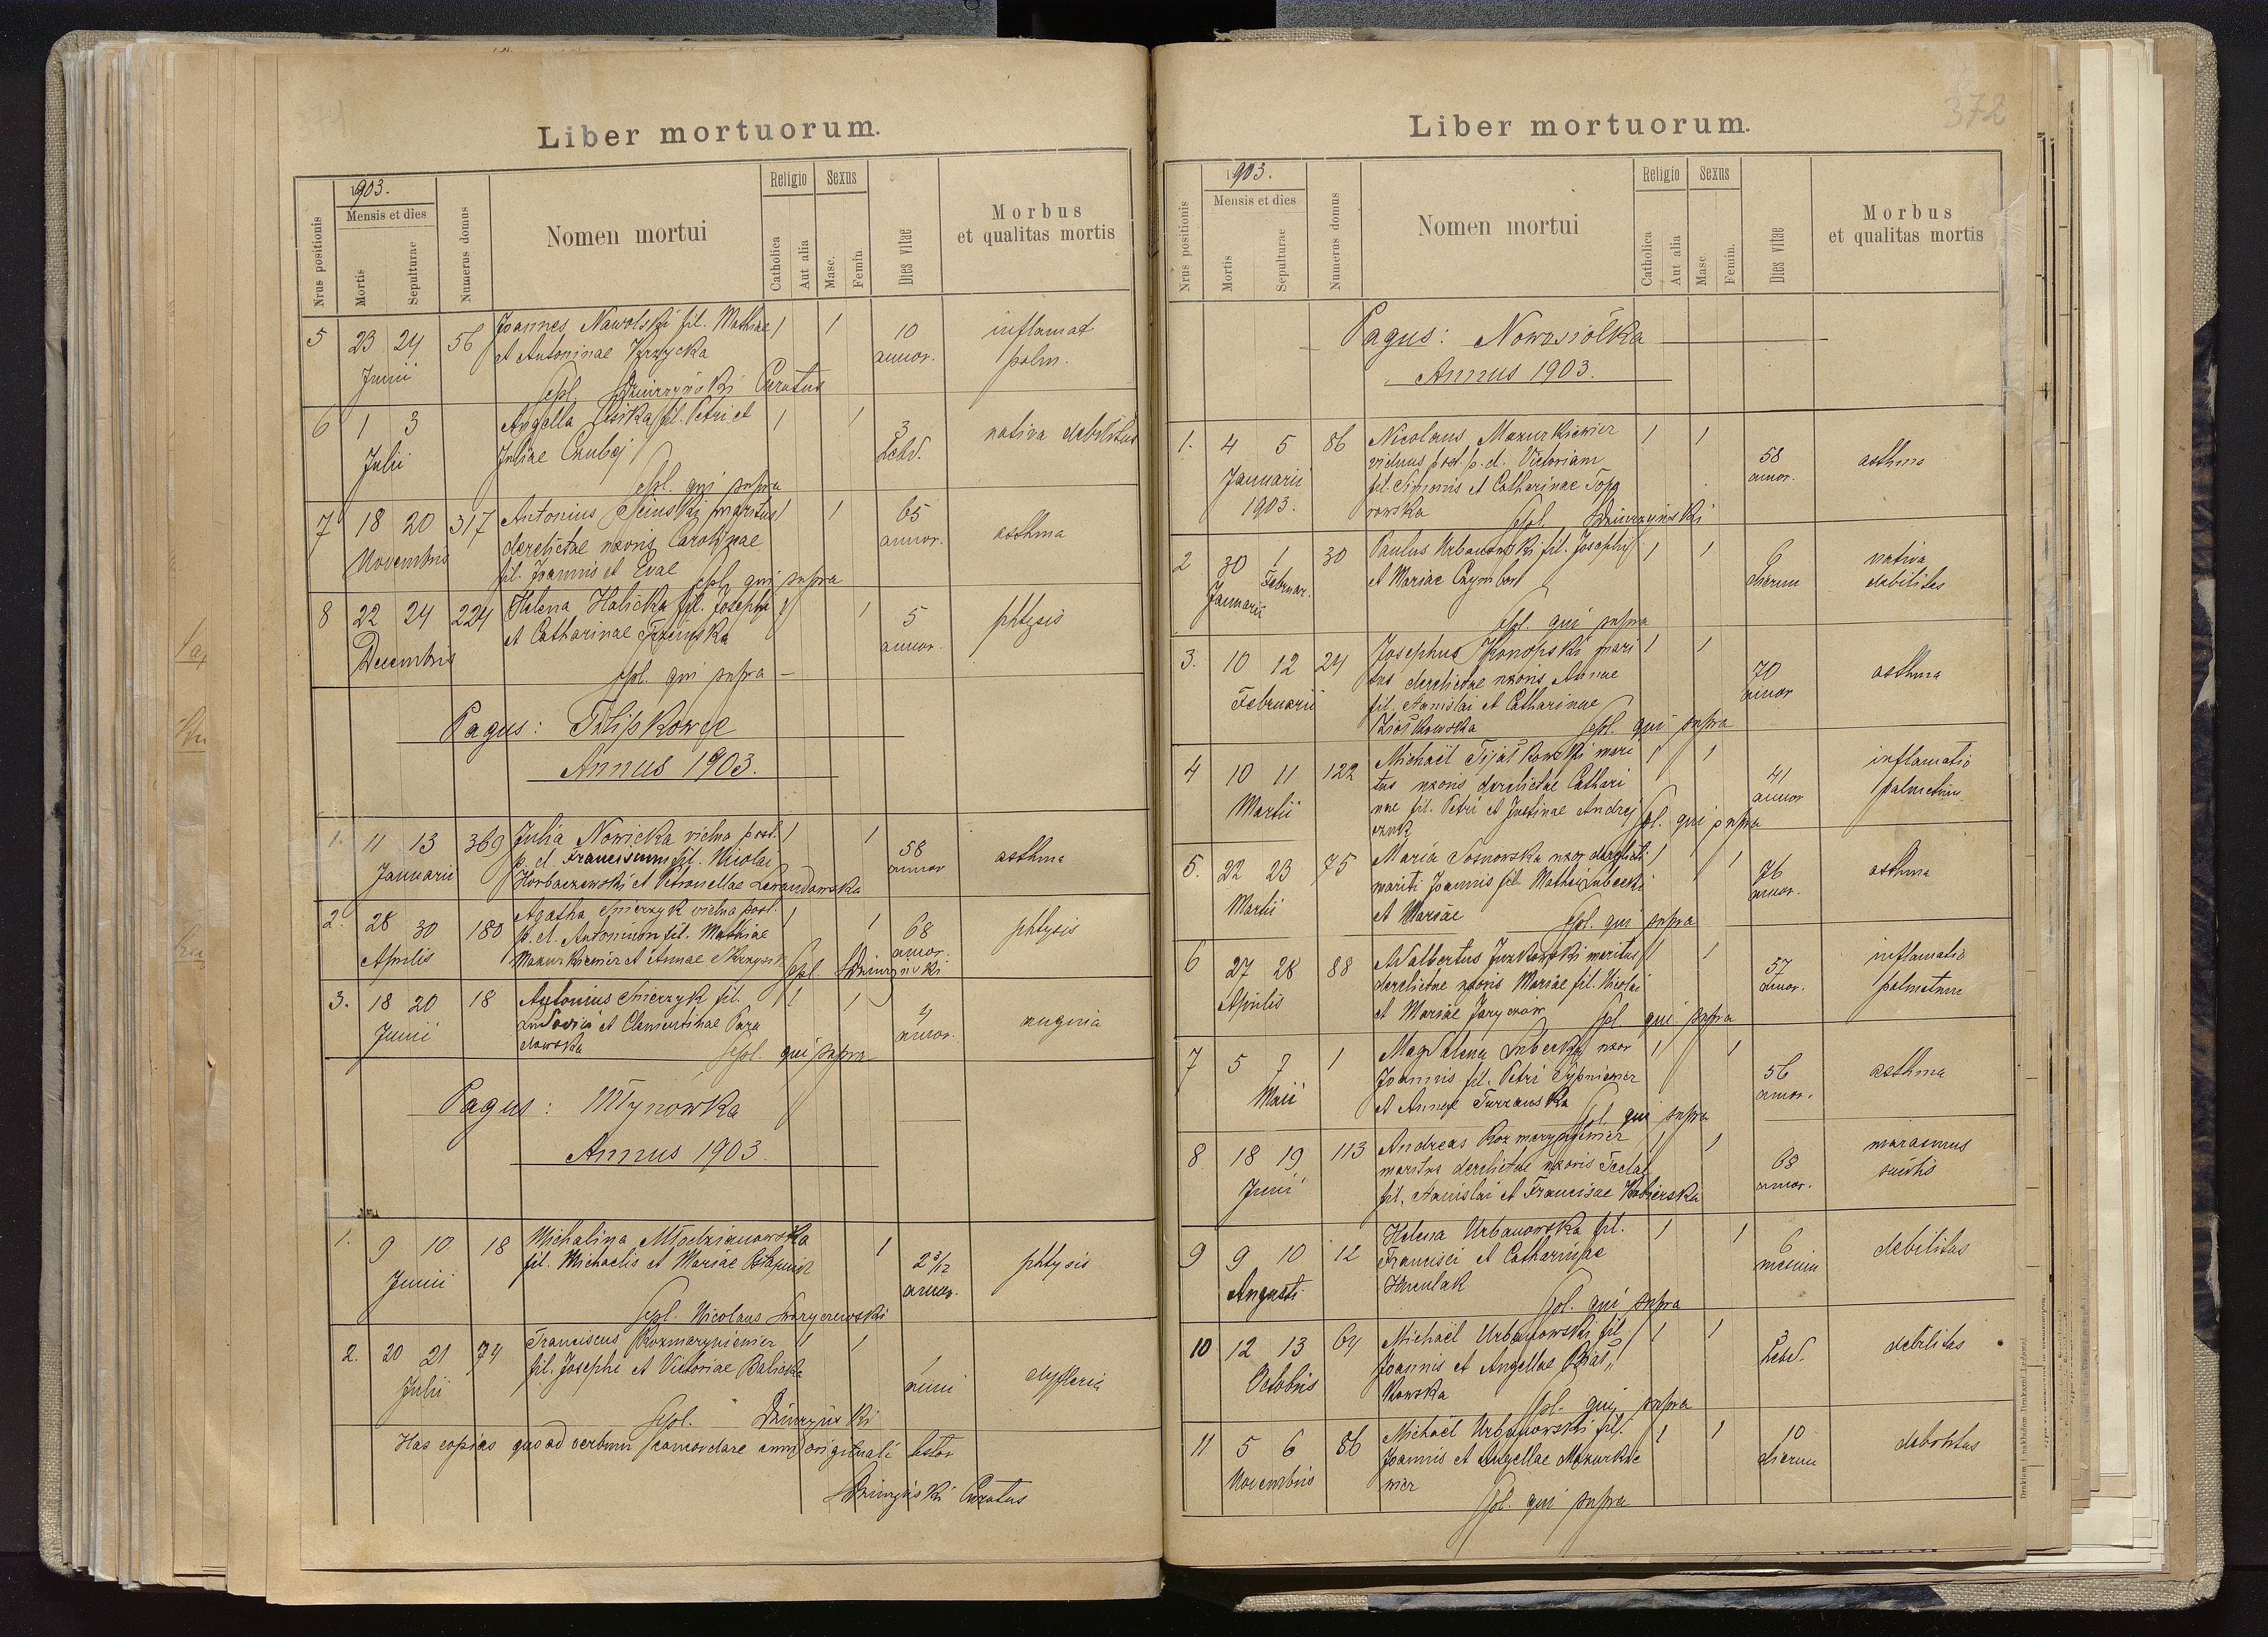 Liber mortuorum.
1903.
Nrus positionis
Mensis et dies
Mortis
Sepulturae
Numerus domus
Nomen mortui
Religio
Catholica
Aut alia
Sexus
Masc.
Femin
Dies vitae
Morbus
et qualitas mortis
5 23 24 56 Joannes Nawolski fil. Mathiae 1 1 10 inflamat
Junii et Antoninae annor. polm.
Sepl. Dziurzyński Curatus
6 1 3 Angella fil. Petri et 1 1 3 nativa debilitas
Julii Juliae Czubej hebd.
Sepl. qui supra
7 18 20 317 Antonius maritus 1 1 65 asthma
Novembris derelictae uxoris Carolinae annor.
fil. Joannis et Evae Sepl. qui supra
8 22 24 224 Helena Halicka fil. Josephi 1 1 5 phtysis
Decembris et Catharinae annor.
Sepl. qui supra
Pagus: Filipkowce
Annus 1903.
1. 11 13 369 Julia Nowicka vidua post. 1 1 58 asthma
Januarii p. d. Franciscum fil. Nicolai annor
Horbaczewski et Petronellae Lewandowska
2. 28 30 180 Agatha vidua post. 1 1 68 phtysis
Aprilis p. d. Antonium fil. Mathiae annor.
Mazurkiewicz et Annae Sepl. Dziurzyński
3. 18 20 18 Antonius fil. 1 1 4 angina
Junii Ludovici et Clementinae annor.
Sepl. qui supra
Pagus: Młynówka
Annus 1903.
1. 9 10 18 Michalina Młodzianowska 1 2 3/12 phtysis
Junii fil. Michaelis et Mariae annor.
Sepl. Nicolaus
2. 20 21 74 Franciscus Rozmaryniewicz 1 1 1
Julii fil. Josephi et Victoriae Balicka dyfteria
Sepl. Dziurzyński
Has copias quoad verbum concordare cum originali testor
Dziurzyński Curatus
372
Liber mortuorum.
1903.
Nrus positionis
Mensis et dies
Mortis
Sepulturae
Numerus domus
Nomen mortui
Religio
Catholica
Aut alia
Sexus
Masc
Femin.
Dies vitae
Morbus
et qualitas mortis
Pagus: Nowosiółka
Annus 1903.
1. 4 5 86 Nicolaus Mazurkiewicz 1 1 58 asthma
Januarii viduus post. p. d. Victoriam annor.
1903. fil. Simonis et Catharinae Topo
rowska Sepl. Dziurzyński
2 30 1 30 Paulus Urbanowski fil. Josephi 1 1 6 nativa
Januarii Februar. et Mariae dierum debilitas
Sepl. qui supra
3. 10 12 24 Josephus Konopski mari 1 1 70 asthma
Februarii tus derelictae uxoris Annae annor
fil. Stanislai et Catharinae
Sepl. qui supra
4 10 11 122 Michaël mari 1 1 41 inflamatio
Martii tus uxoris derelictae Cathari annor palmetum
nae fil. Petri et Justinae Andrej
czuk Sepl. qui supra
5. 22 23 75 Maria Sosnowska uxor derelicti 1 1 76 asthma
Martii mariti Joannis fil. Mathei Lubecki annor.
et Mariae Sepl. qui supra
6 27 28 88 Adalbertus maritus 1 1 57 inflamatio
Aprilis derelictae uxoris Mariae fil. Nicolai annor. palmetum
et Mariae Sepl. qui supra
7 5 7 1 Magdalena Lubecka uxor 1 1 56 asthma
Maii Joannis fil. Petri annor.
et Annae Turzanska Sepl. qui supra
8 18 19 113 Andreas Rozmarynowicz 1 1 68 marasmus
Junii maritus derelictae uxoris Teclae annor.
fil. Stanislai et Franciscae
9 9 10 12 Helena Urbanowska fil. 1 1 6 debilitas
Augusti Francisci et Catharinae mensium
Hunculak
Sepl. qui supra
10 12 13 64 Michaël Urbanowski fil. 1 1 3 debilitas
Octobris Joannis et Angellae hebd.
kowska Sepl. qui supra
11 5 6 86 Michaël Urbanowski fil. 1 1 10 debilitas
Novembris Joannis et Angellae Mazurkie dierum
wicz
Sepl. qui supra